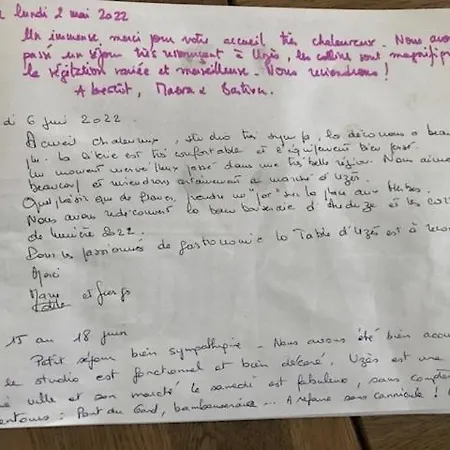 lundi 2 mai 2022
Un immense merci pour votre accueil très chaleureux. Nous avons
passé un séjour très ressourçant à Uzès, les collines sont magnifiques
la végétation variée et merveilleuse. Nous reviendrons !
A bientôt, et Bastien.
di 6 juin 2022.
Accueil chaleureux, studio très sympa, la déco nous a beau
plu. La literie est très confortable et l'équipement bien pensé.
Un moment merveilleux passé dans une très belle région. Nous aimons
beaucoup et reviendrons certainement au marché d'Uzès.
Quel plaisir que de flâner, prendre un "pot" sur la place aux Herbes.
Nous avons redécouvert la bambouseraie d'Anduze et les
de lumière 2022.
Pour les passionnés de gastronomie la Table d'Uzès est à
Merci
et
15 au 18 juin
Petit séjour bien sympathique - Nous avons été bien
le studio est fonctionnel et bien décoré. Uzès est une
ville et son marché le samedi est fabuleux, sans compter
entours : Pont du Gard, bambouseraie ... A refaire sans canicule !